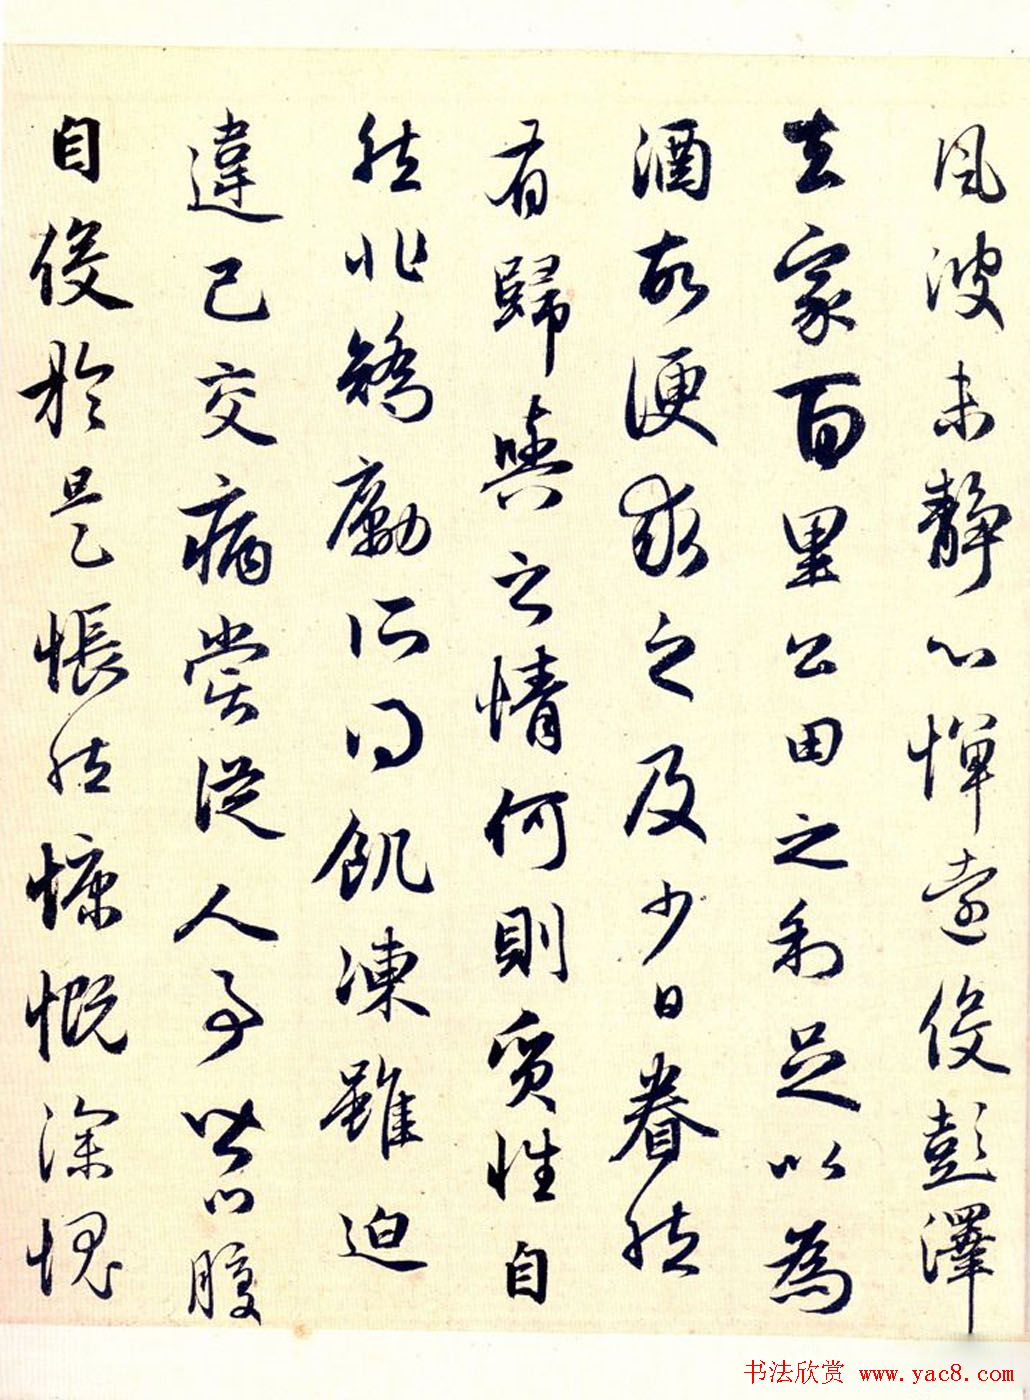 風波未靜心憚遠役彭澤
去家百里公田之利足以為
酒故便求之及少日眷然
有歸與之情何則質性自
然非矯勵所得飢凍雖迫
違己交病嘗從人事皆口腹
自役於是悵然慷慨深愧
书法欣赏 www.yac8.com